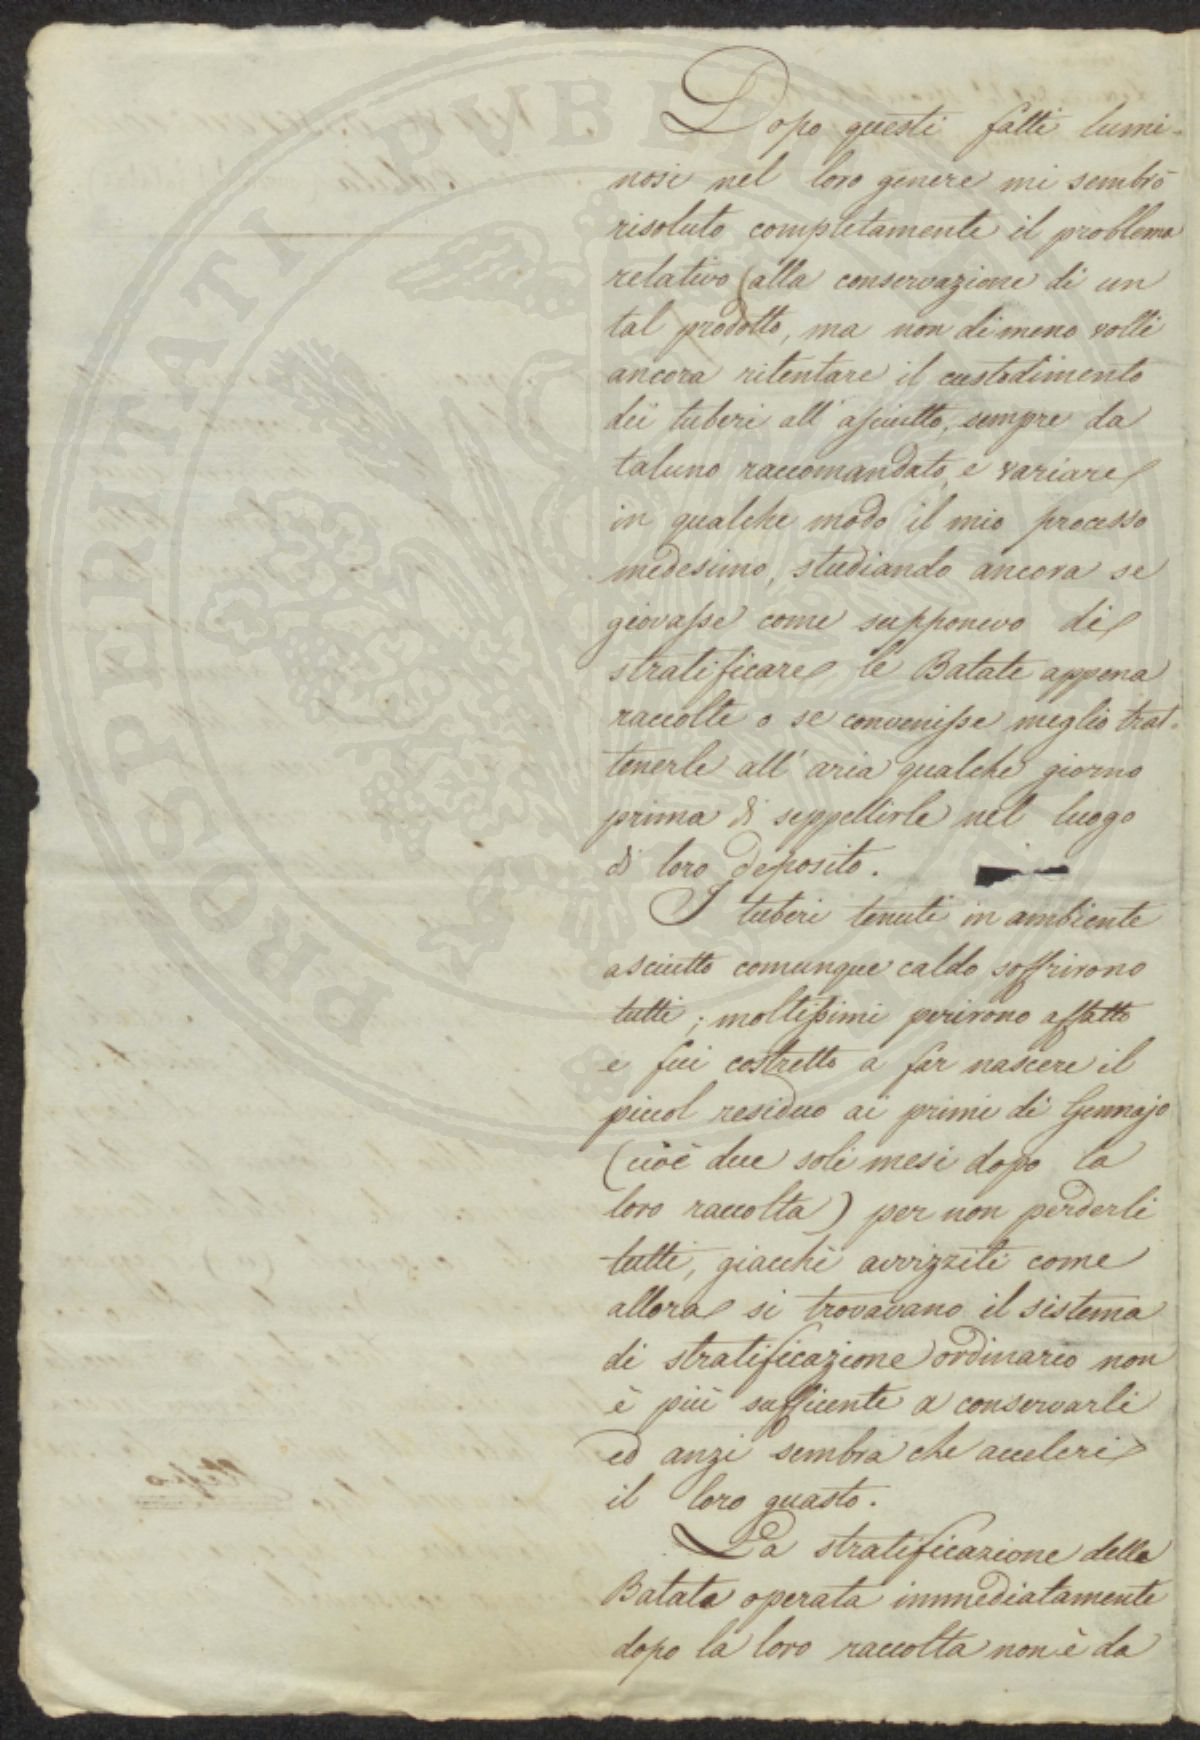 Dopo questi fatti lumi-
nosi nel loro genere mi sembrò
risoluto completamente il problema
relativo (alla conservazione di un
tal prodotto, ma non dimeno volli
ancora ritentare il custodimento
dei tuberi all' asciutto, sempre da
taluno raccomandato, e variare
in qualche modo il mio processo
medesimo, studiando ancora se
giovasse come supponevo di
stratificare le Batate appena
raccolte o se convenisse meglio trat-
tenerle all' aria qualche giorno
prima di seppellirle nel luogo
di loro deposito.
I tuberi tenuti in ambiente
asciutto comunque caldo soffrirono
tutti; moltissimi perirono affatto
e fui costretto a far nascere il
piccol residuo ai primi di Gennajo
(cioè due soli mesi dopo la
loro raccolta) per non perderli
tutti, giacchè avvizziti come
allora si trovavano il sistema
di stratificazione ordinario non
è più sufficente a conservarli
ed anzi sembra che acceleri
il loro guasto.
La stratificazione delle
Batate operata immediatamente
dopo la loro raccolta non è da
PROSPERITATI PUBLICAE